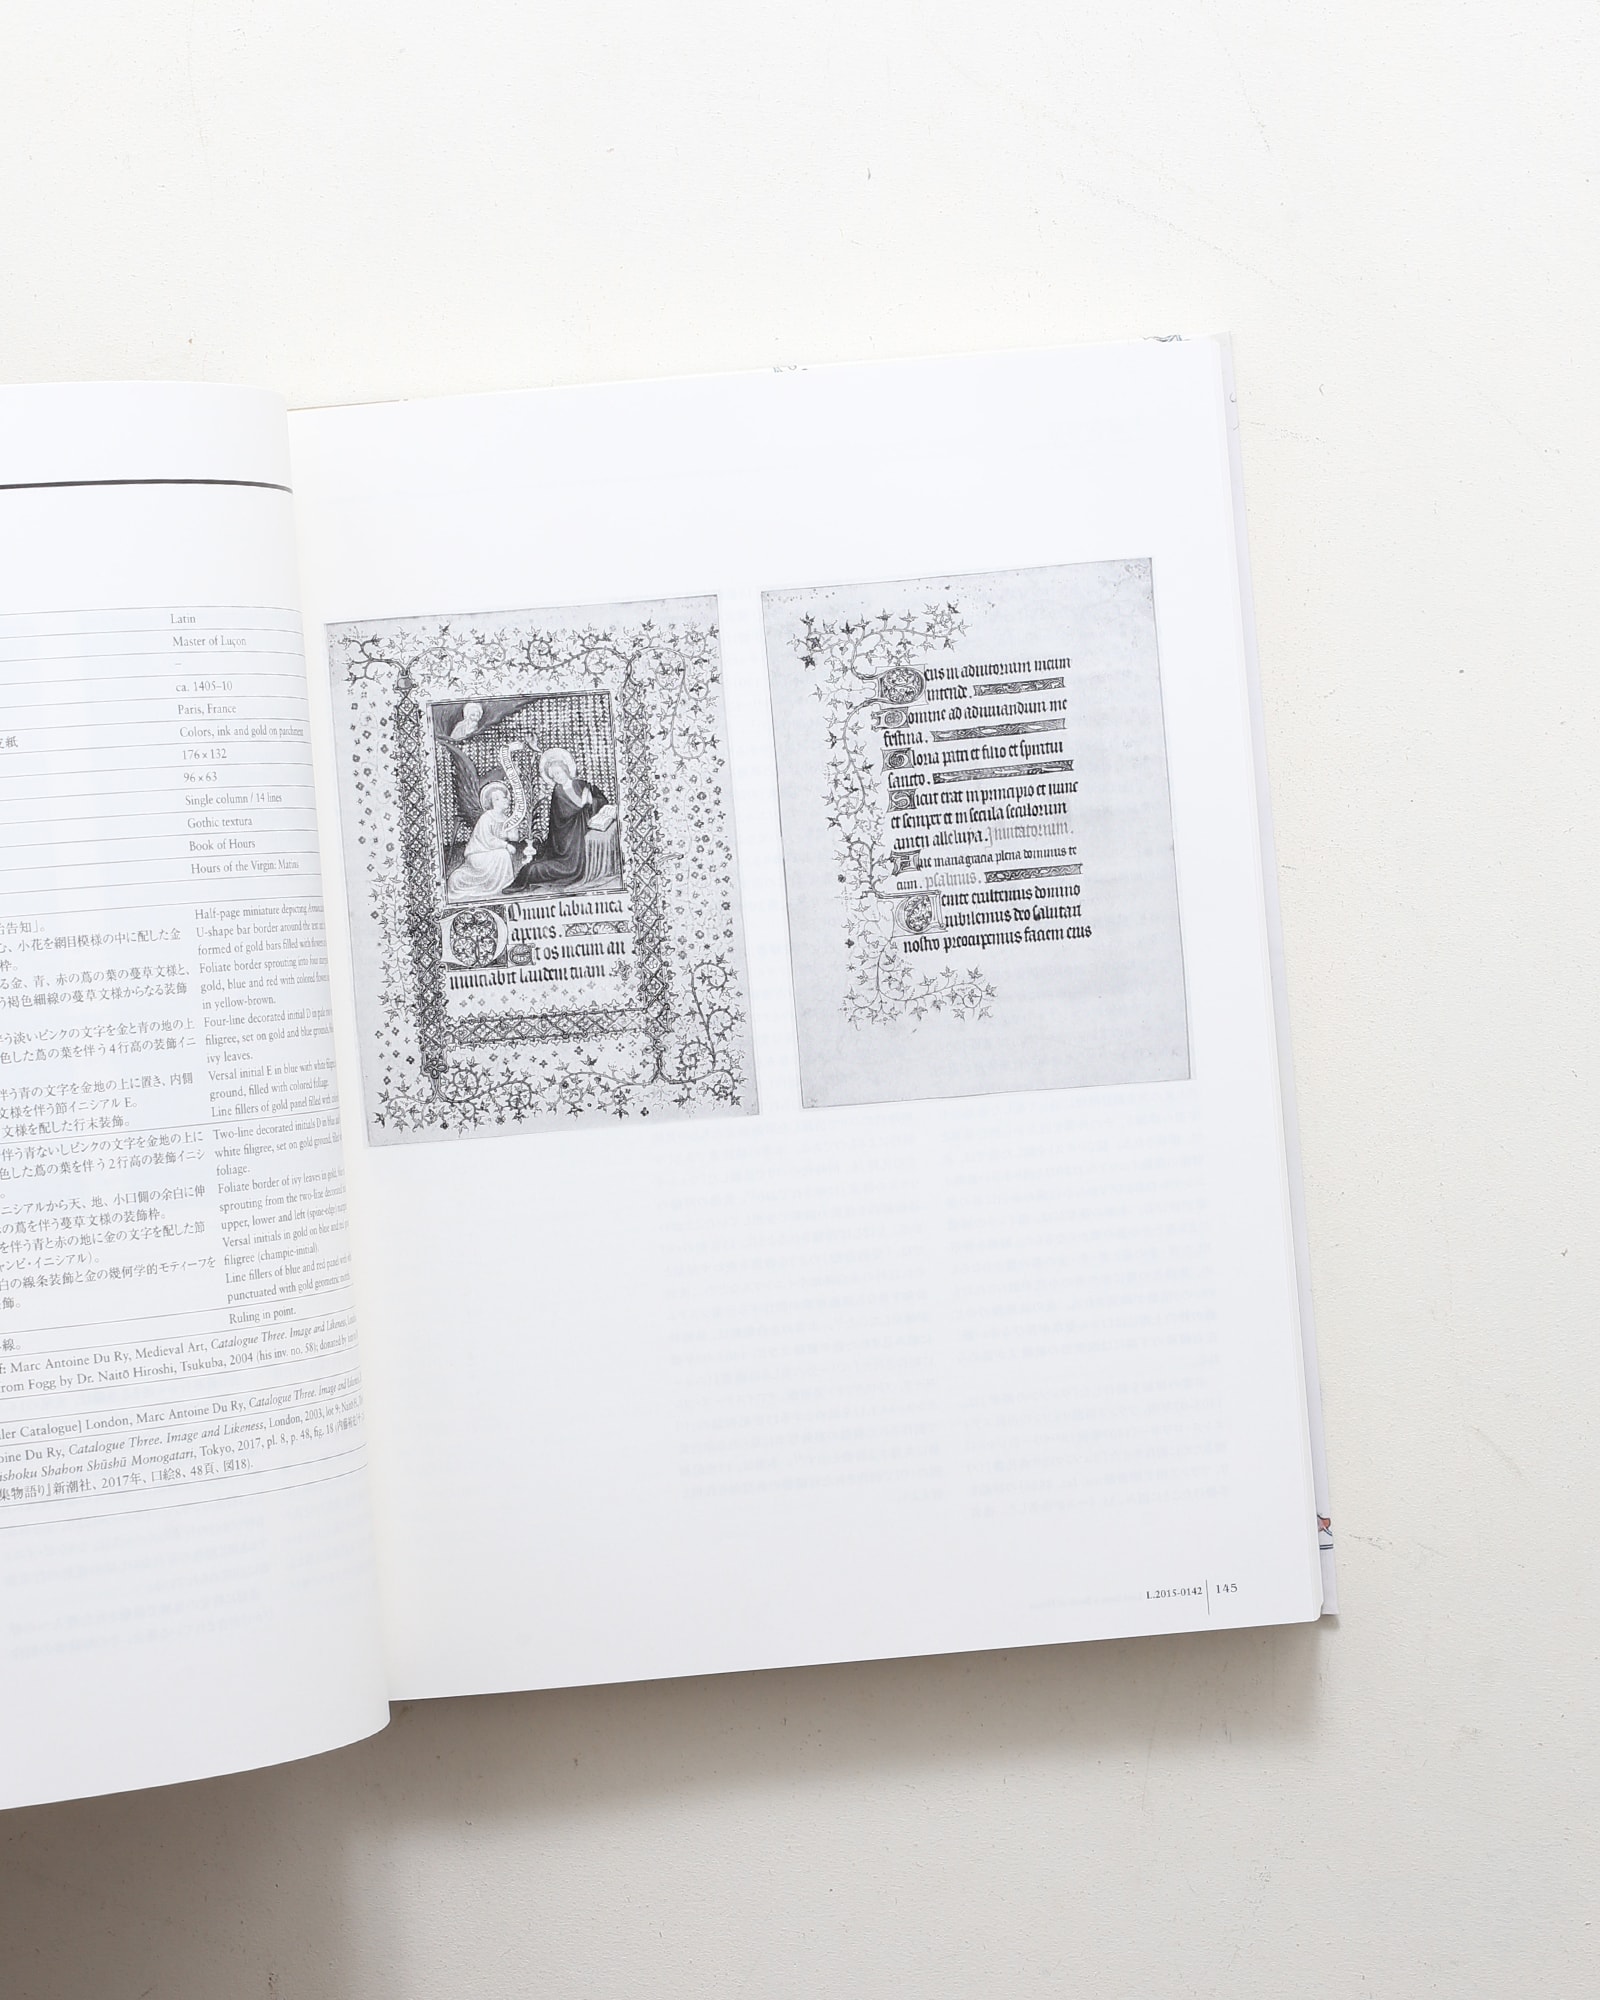 Latin
Master of Luçon
–
ca. 1405–10
Paris, France
Colors, ink and gold on parchment
176 × 132
96 × 63
Single column / 14 lines
Gothic textura
Book of Hours
Hours of the Virgin: Matins
告知」。
、小花を網目模様の中に配した金
枠。
る金、青、赤の蔦の葉の蔓草文様と、
う褐色細線の蔓草文様からなる装飾
伴う淡いピンクの文字を金と青の地の上
色した蔦の葉を伴う4行高の装飾イニ
伴う青の文字を金地の上に置き、内側
文様を伴う節イニシアルE。
文様を配した行末装飾。
伴う青ないしピンクの文字を金地の上に
色した蔦の葉を伴う2行高の装飾イニシ
。
ニシアルから天、地、小口側の余白に伸
の蔦を伴う蔓草文様の装飾枠。
を伴う青と赤の地に金の文字を配した節
ャンピ・イニシアル）。
白の線条装飾と金の幾何学的モティーフを
飾。
線。
Half-page miniature depicting
U-shape bar border around the text
formed of gold bars filled with
Foliate border sprouting into
gold, blue and red with colored
in yellow-brown.
Four-line decorated initial D in
filigree, set on gold and blue ground,
ivy leaves.
Versal initial E in blue with white
ground, filled with colored foliage.
Line fillers of gold panel filled with
Two-line decorated initials D in blue
white filigree, set on gold ground,
foliage.
Foliate border of ivy leaves in gold,
sprouting from the two-line
upper, lower and left (spine-edge)
Versal initials in gold on blue and
filigree (champie-initial).
Line fillers of blue and red panel with
punctuated with gold geometric
Ruling in point.
Marc Antoine Du Ry, Medieval Art, Catalogue Three. Image and Likeness,
from Fogg by Dr. Naitō Hiroshi, Tsukuba, 2004 (his inv. no. 58); donated by
ler Catalogue] London, Marc Antoine Du Ry, Catalogue Three. Image and
oine Du Ry, Catalogue Three. Image and Likeness, London, 2003, lot 9;
ishoku Shahon Shūshū Monogatari, Tokyo, 2017, pl. 8, p. 48, fig. 18
集物語り』新潮社、2017年、口絵8、48頁、図18).
Domine labia mea
aperies.
Et os meum an
nuntiabit laudem tuam
Deus in adiutorium meum
intende.
Domine ad adiuuandum me
festina.
Gloria patri et filio et spiritui
sancto.
Sicut erat in principio et nunc
et semper et in secula seculorum
amen alleluya. Inuitatorium.
Aue maria gracia plena dominus te
cum. psalmus.
Uenite exultemus domino
iubilemus deo salutari
nostro preocupemus faciem eius
L.2015-0142
145